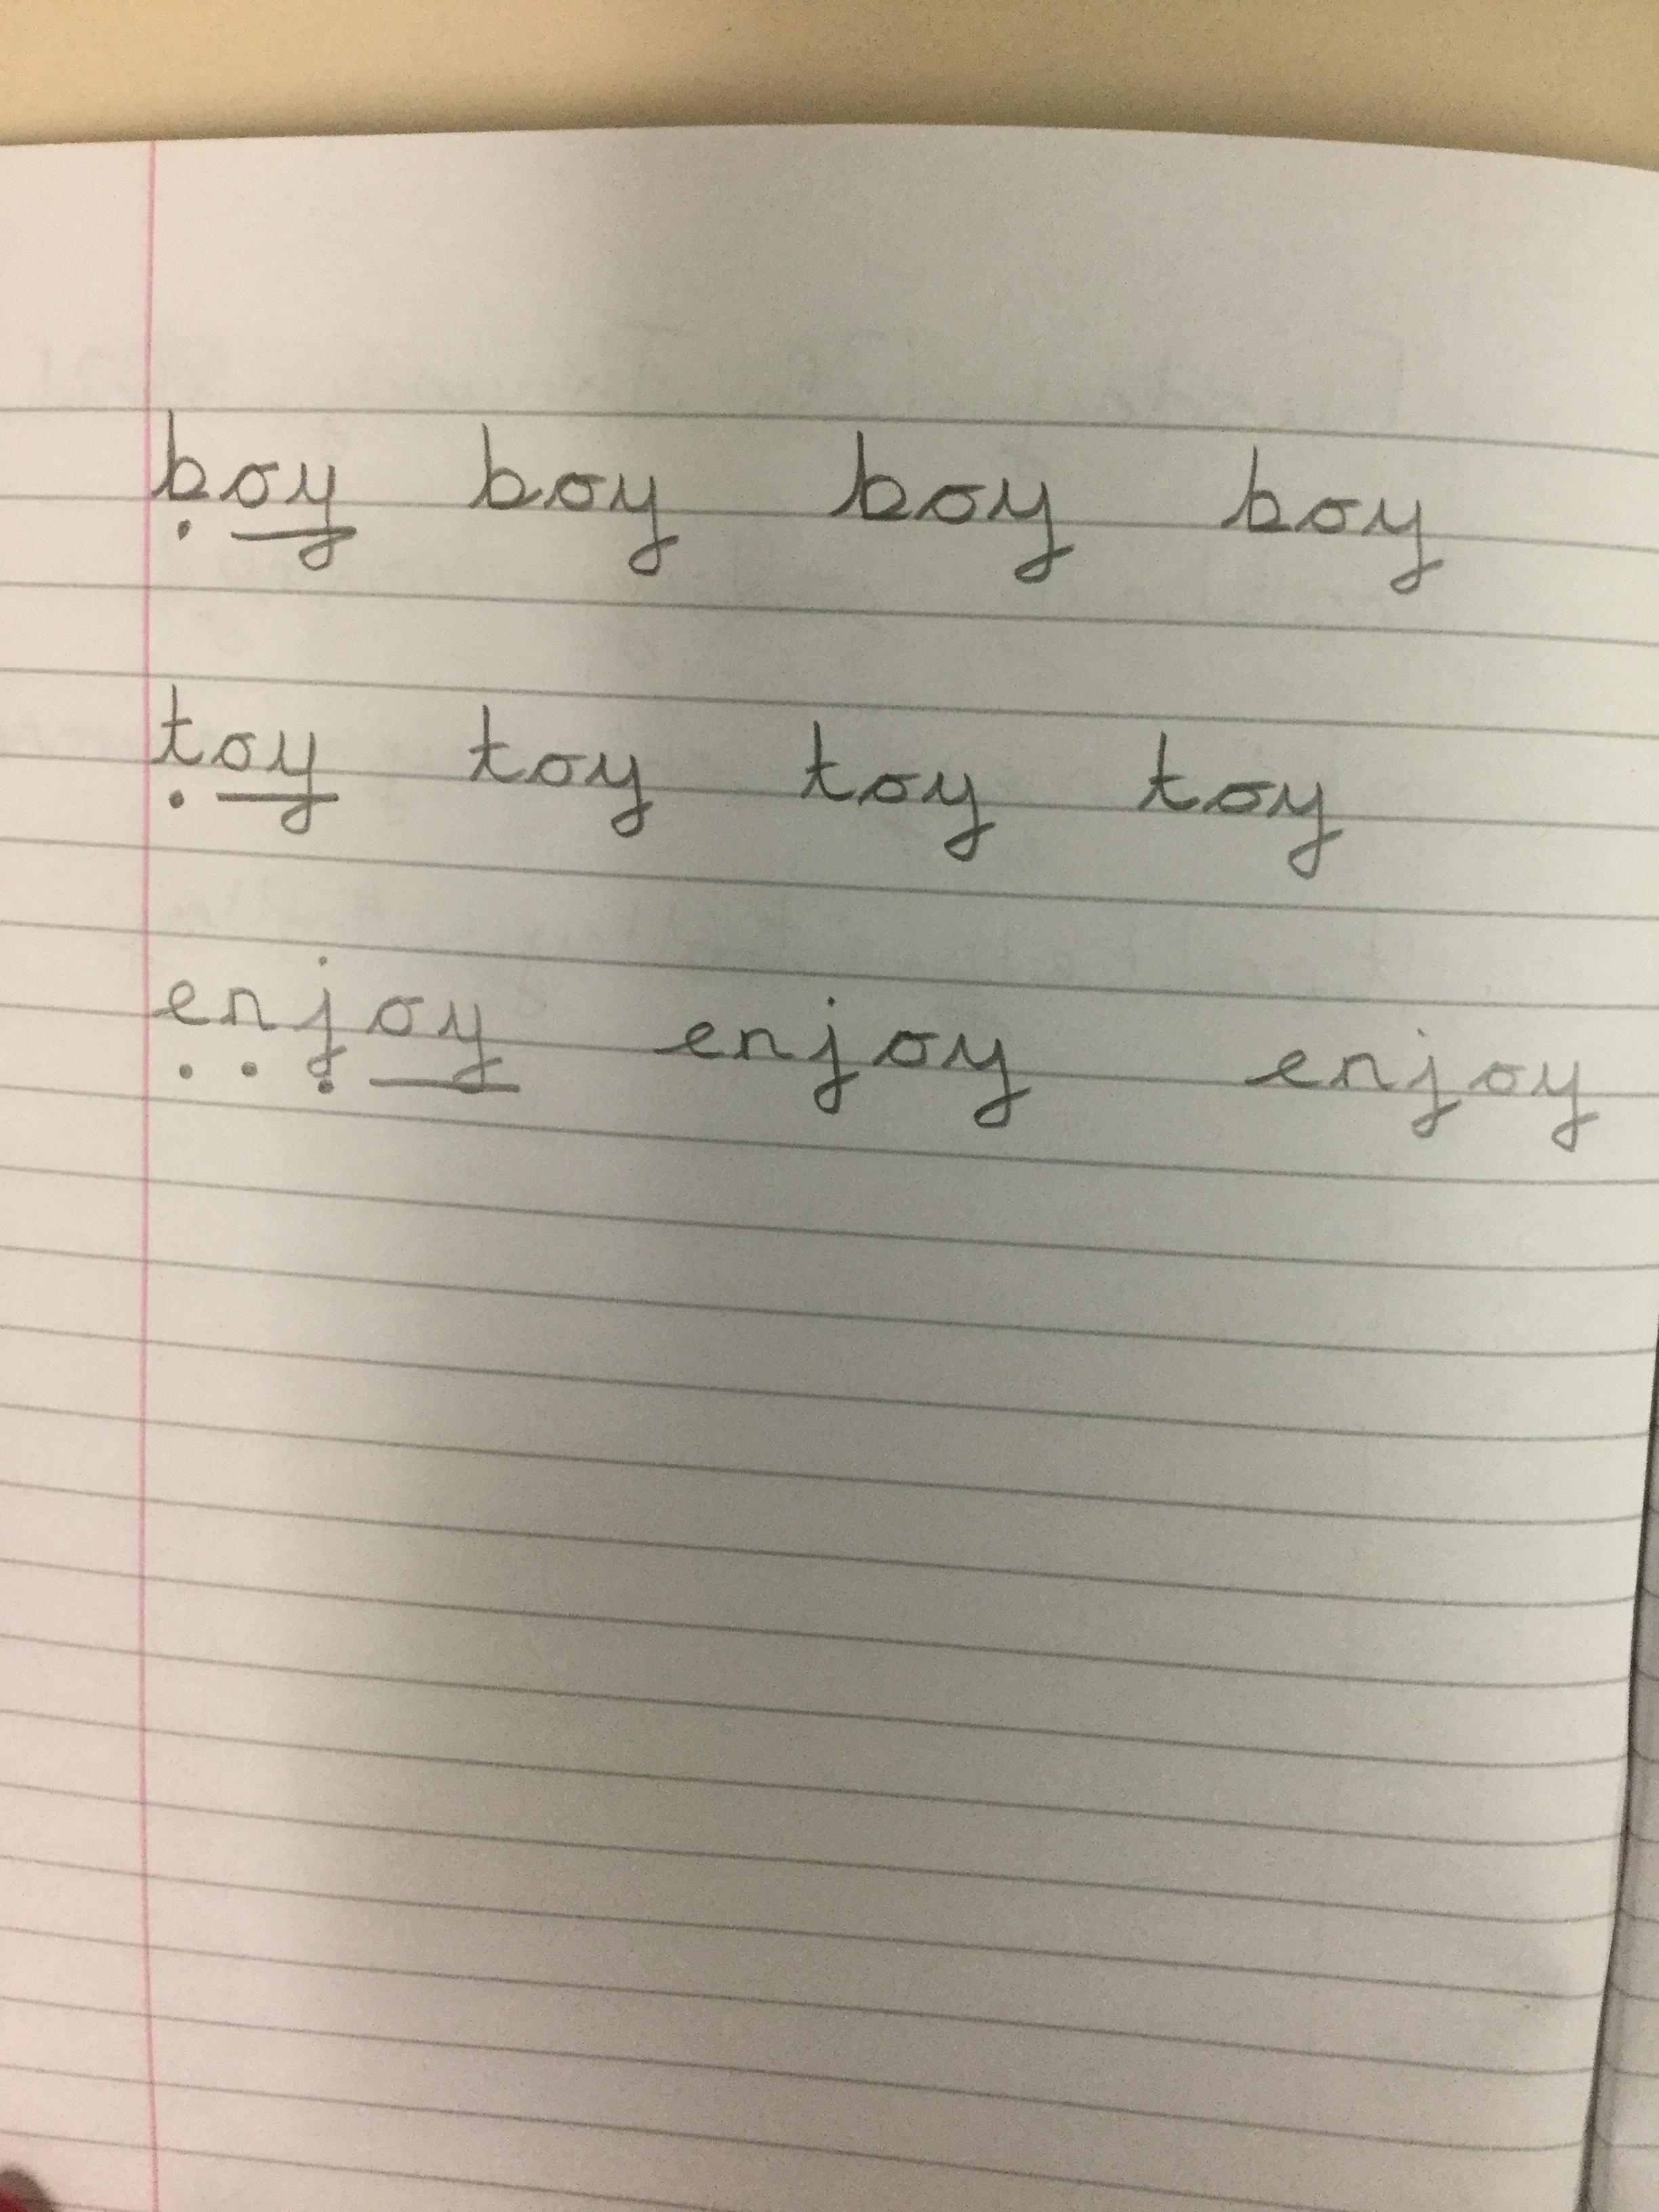 boy boy boy boy
toy toy toy toy
enjoy enjoy enjoy